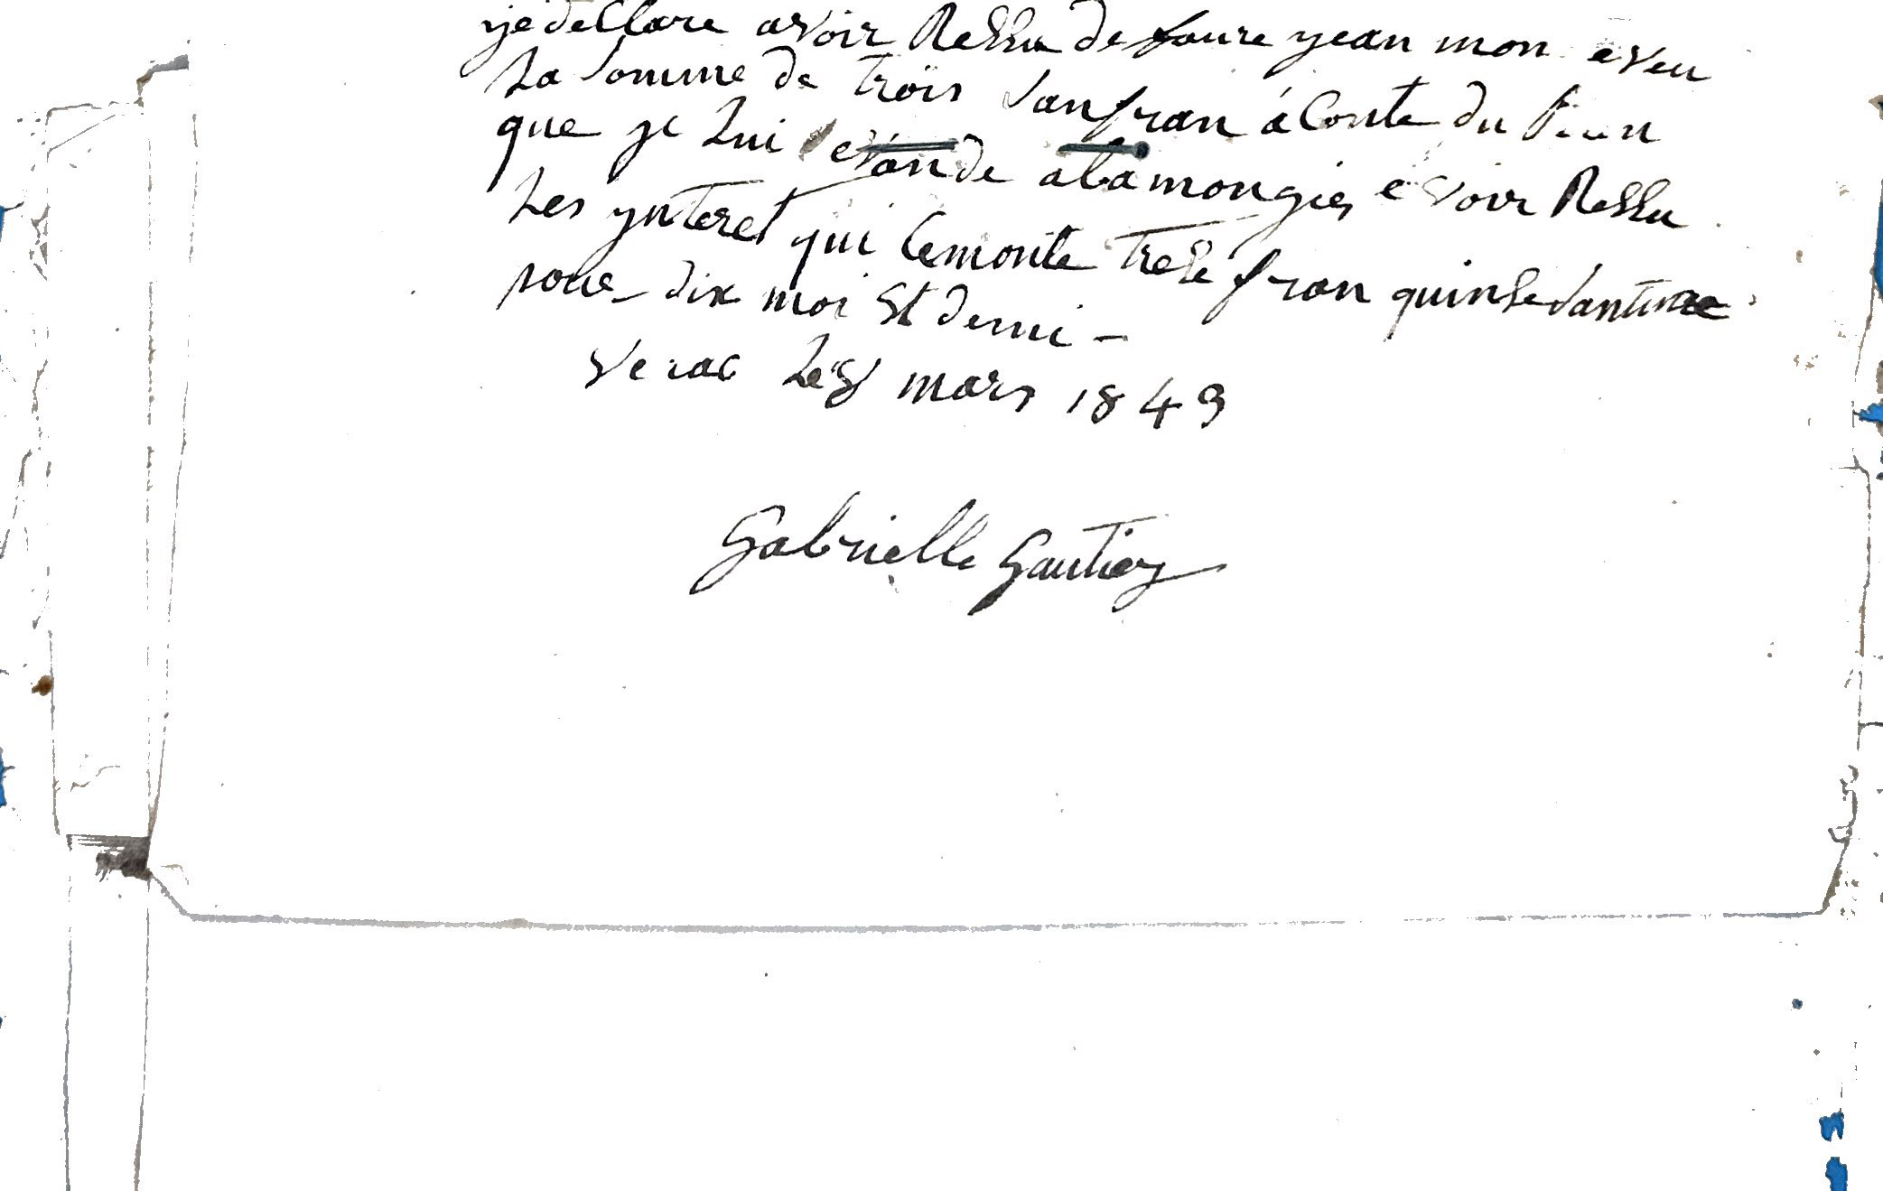 je deClare avoir ReSSu de faure jean mon eveu
La Somme de trois San fran a Conte du
que je Lui e vande a la mongie, e voir ReSSu
Les ynteret qui Cemonte treSe fran quinSe Santime
pour dix moi St demi -
verac Le 8 mars 1849
Gabrielle Gautier